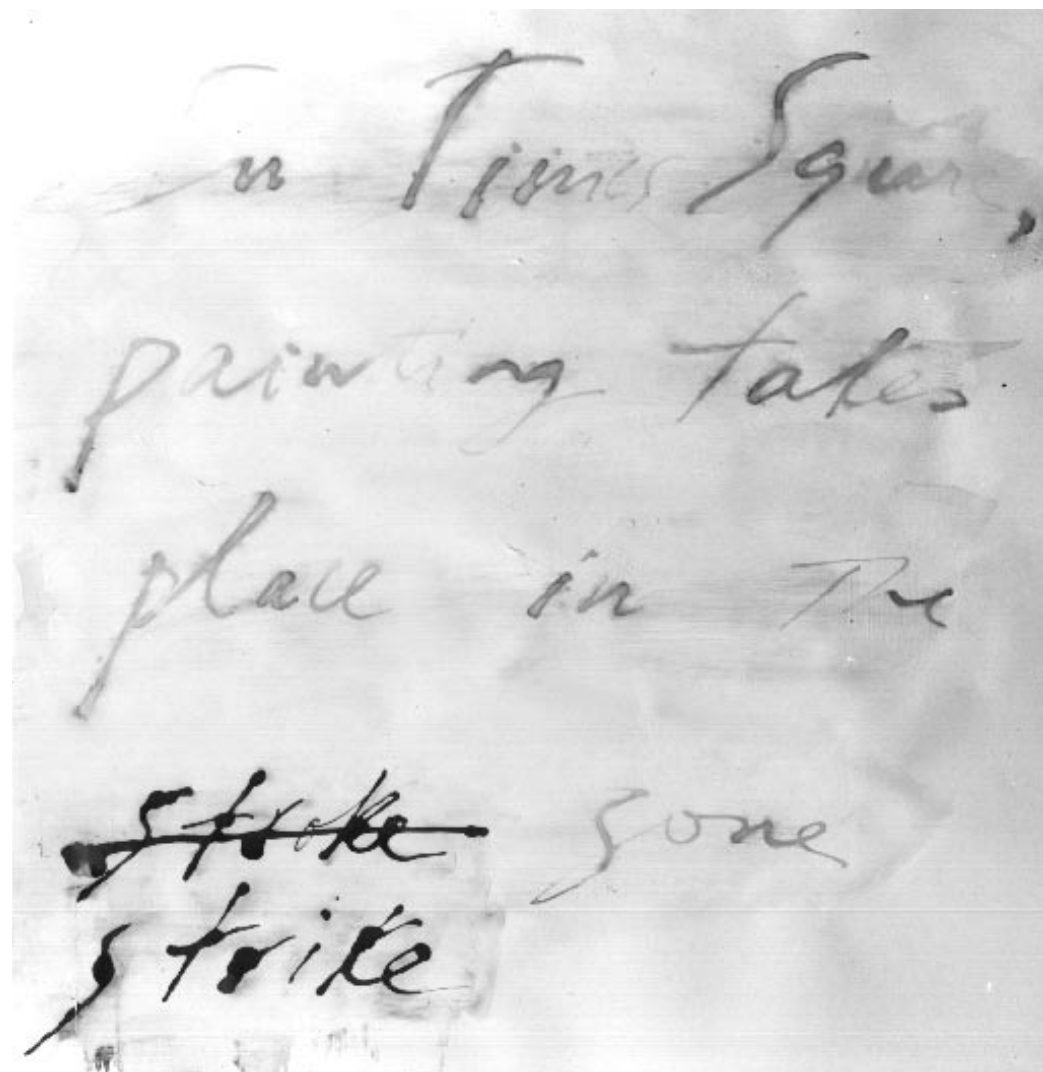 In Times Square,
painting takes
place in the
stroke zone
strike